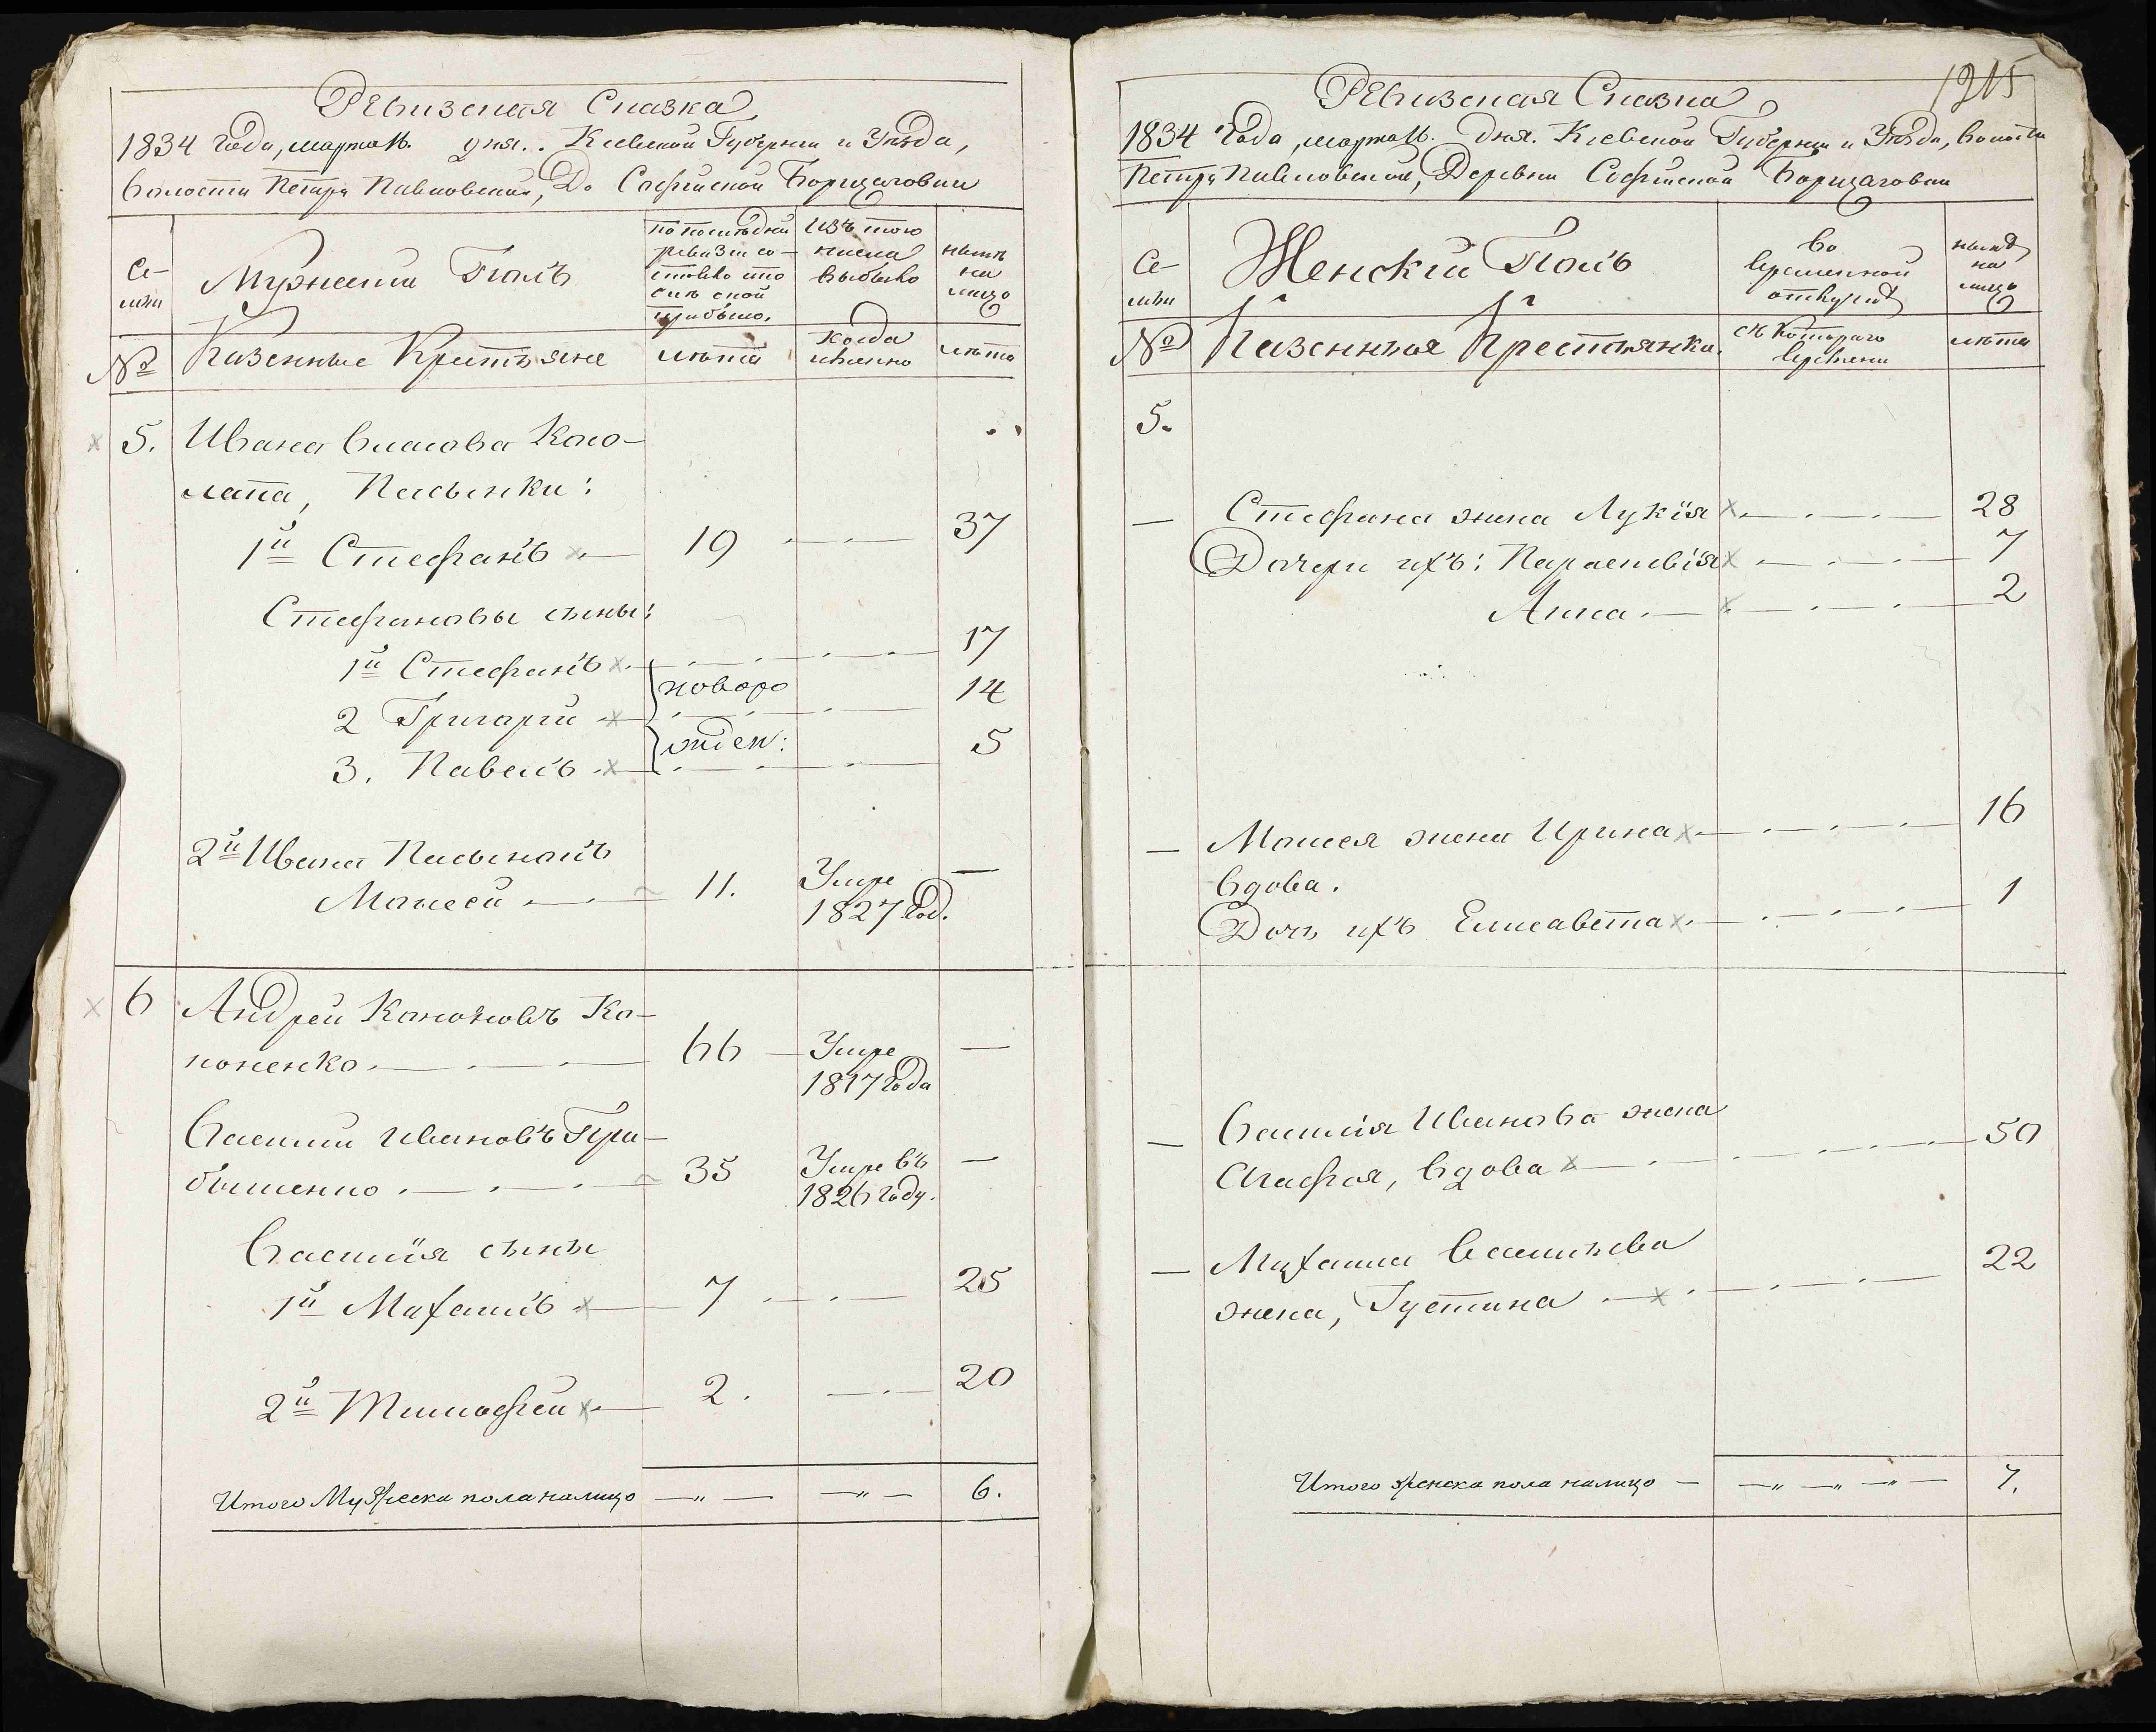 Ревизская Сказка
1834 года, марта 16. дня.. Кіевской Губерніи и Уѣзда,
Волости Петро Павловской, Д. Софійской Борщаговки
Се-
мьи
Мужескій Полъ
по послѣдней
ревизіи со-
стояло или
послѣ оной
прибыло.
Изъ того
числа
выбыло
нынѣ
на
лицо
№
Казенные Крестьяне
лѣта
Когда
именно
лѣта
5. Ивана Власова Коло-
лапа, Пасынки:
1й Стефанъ 19 37
Стефановы сыны:
1й Стефанъ 17
новоро
2 Григорій 14
жден:
3. Павелъ 5
2й Ивана Пасынокъ
Моисей 11. Умре —
1827 год.
6 Андрей Кононовъ Ко-
ноненко 66 Умре —
1817 года
Василій Ивановъ При-
бышенко 35 Умре въ —
1826 году.
Василія сыны
1й Михаилъ 7 25
2й Тимофей 2. 20
Итого Мужеска пола налицо —„— —„— 6.
1215
Ревизская Сказка
1834 года, марта 16. дня. Кіевской Губерніи и Уѣзда, Волости
Петро Павловской, Деревни Софійской Борщаговки
Се-
мьи
Женскій Полъ
Во
временной
отлучкѣ
нынѣ
на
лицо
№
Казенныя Крестьянки.
съ Котораго
времени
лѣта
5.
— Стефана жена Лукія 28
Дочери ихъ: Параскевія 7
Анна 2
— Моисея жена Ирина 16
вдова.
Дочь ихъ Елисавета 1
— Василія Иванова жена
Агафія, вдова 50
— Михаила Васильева
жена, Густина 22
Итого женска пола налицо — —„—„—„— 7.